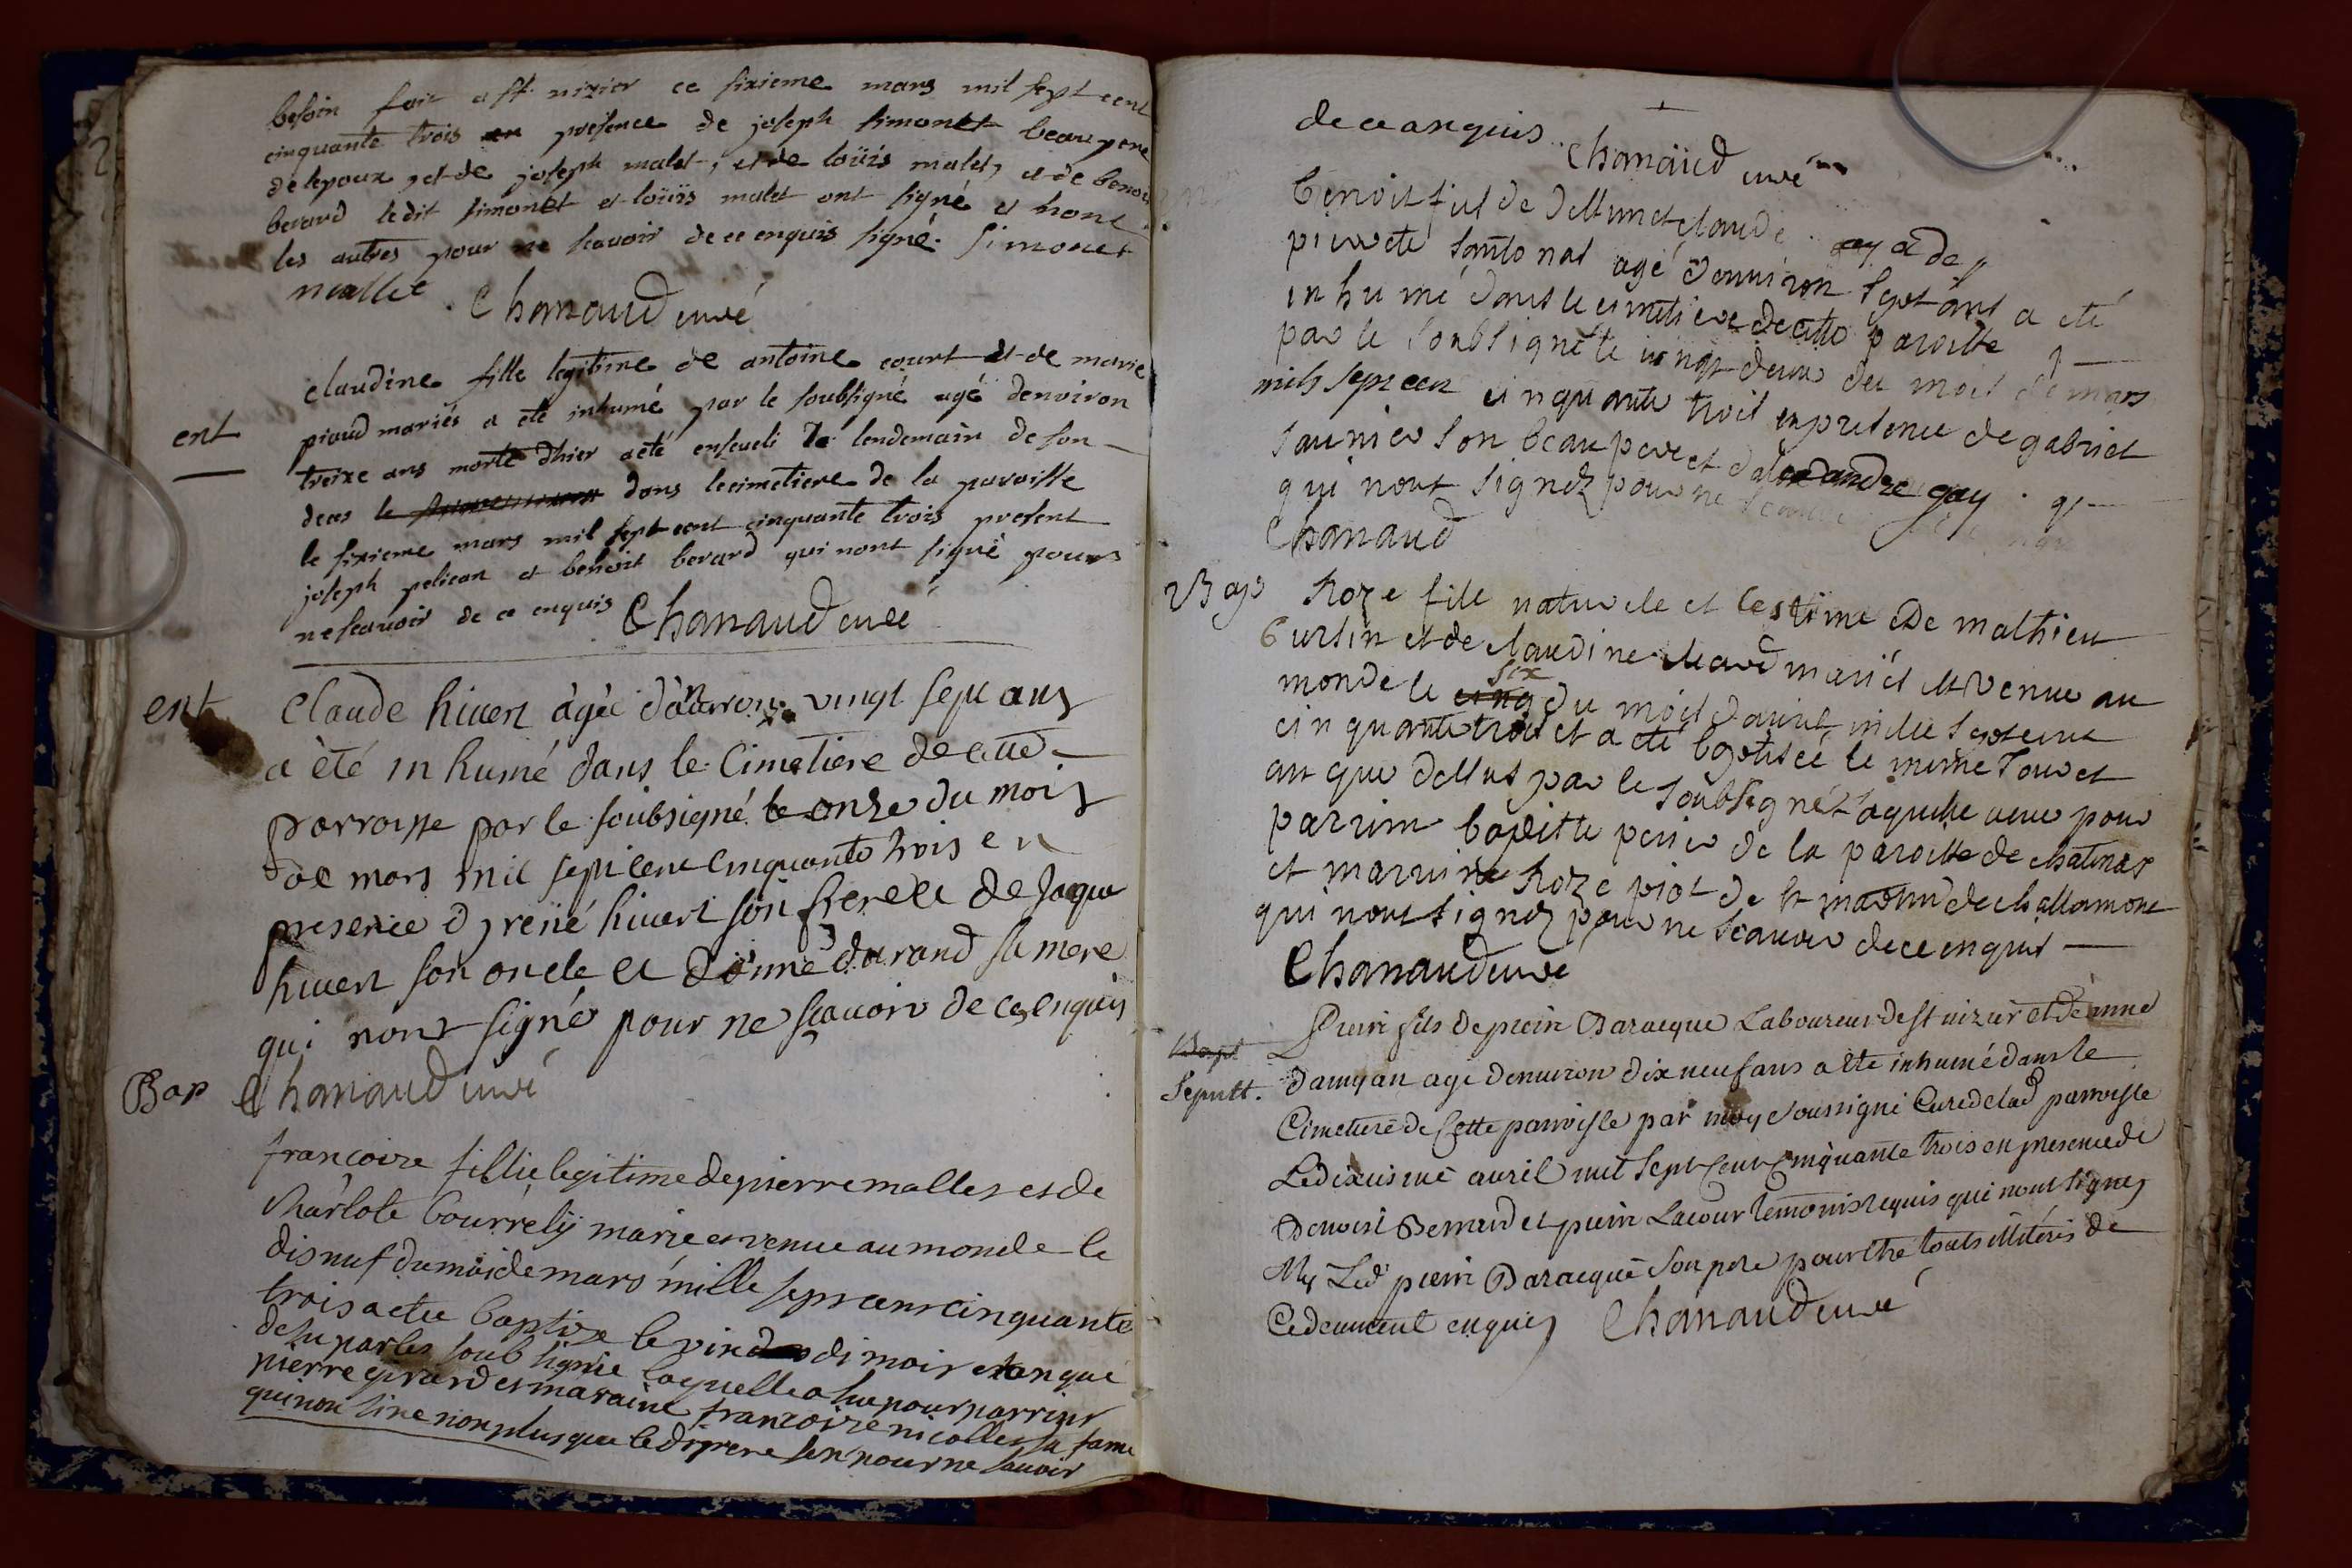 besoin fait a st nizier ce sixieme mars mil sept cent
cinquante trois en presence de joseph simonet beaupere
de lepoux, et de joseph malet, et de loüis malet, et de benoit
berard ledit simonet et loüis malet ont signé et nont
les autres pour ne scavoir de ce enquis signé. Simonet
mallet. Chanaud curé
ent
claudine fille legitime de antoine court et de marie
piaud mariés a eté inhumé par le soubsigné agé denviron
treize ans morte dhier a eté enseveli le lendemain de son
deces le dans le cimetiere de la paroisse
le sixieme mars mil sept cent cinquante trois present
joseph pelican et benoit berard qui nont signé pour
ne scavoir de ce enquis Chanaud curé
ent
Claude hiuert âgée d'anviron vingt sept ans
a èté inhumé dans le Cimetiere de cette
parroisse par le soubsigné le onze du mois
de mars mil sept cent cinquante trois en
presence d rené hiuert son frere et de jaque
hiuert son oncle et durand sa mere
qui nont signé pour ne scavoir de ce enquis
Bap Chanaud curé
francoize fillie legitime de pierre malles et de
charlote bourrely marie et venue au monde le
disnuf du mois de mars mille sept cent cinquante
trois a etee baptize le vind di mois et an que
desu par les soub signie laquelle a hu pour parrins
pierre girard et maraine francoize nicolles sa fame
qui non sine non plus que ledi pere pour ne savoir
de ce anquis. Chanaud curé
benoit fils de deffunct claude
pierrete agé denuiron sept ans a eté
inhumé dans le cimetiere de cette paroisse
par le soubsigné le vingt deux du mois de mars
mils sept cen cinquante trois en presence de gabriel
saunier son beaupere et dalexandre gay. q
qui nont signez pour ne
Chanaud
Bap Roze fille naturele et lestime de mathieu
Cursin et de claudine mariés est venue au
monde le cinq six du mois dauril mille sept cent
cinquante trois et a eté baptisée le meme jour et
an que dessus par le soubsigné laquelle aeue pour
parrin baptiste perier de la paroisse de chatenay
et marrine Roze piot de st martin de challamont
qui nont signez pour ne scauoir de ce enquis
Chanaud curé
Bapt
Sepult.
Pierre fils de pierre Baracque Laboureur de st nizier et de anne
Damyan agé denuiron dix neuf ans a ete inhumé dans le
Cimetiere de Cette parroisse par moy soussigné Curé de lad parroisse
Le dixieme auril mil Sept Cent Cinquante trois en presence de
Benoist Bernard et pierre Lacour temoins requis qui nont signez
Ny Led pierre Baracque Son pere pour être touts illiterés de
Ce deument enquis Chanaud curé